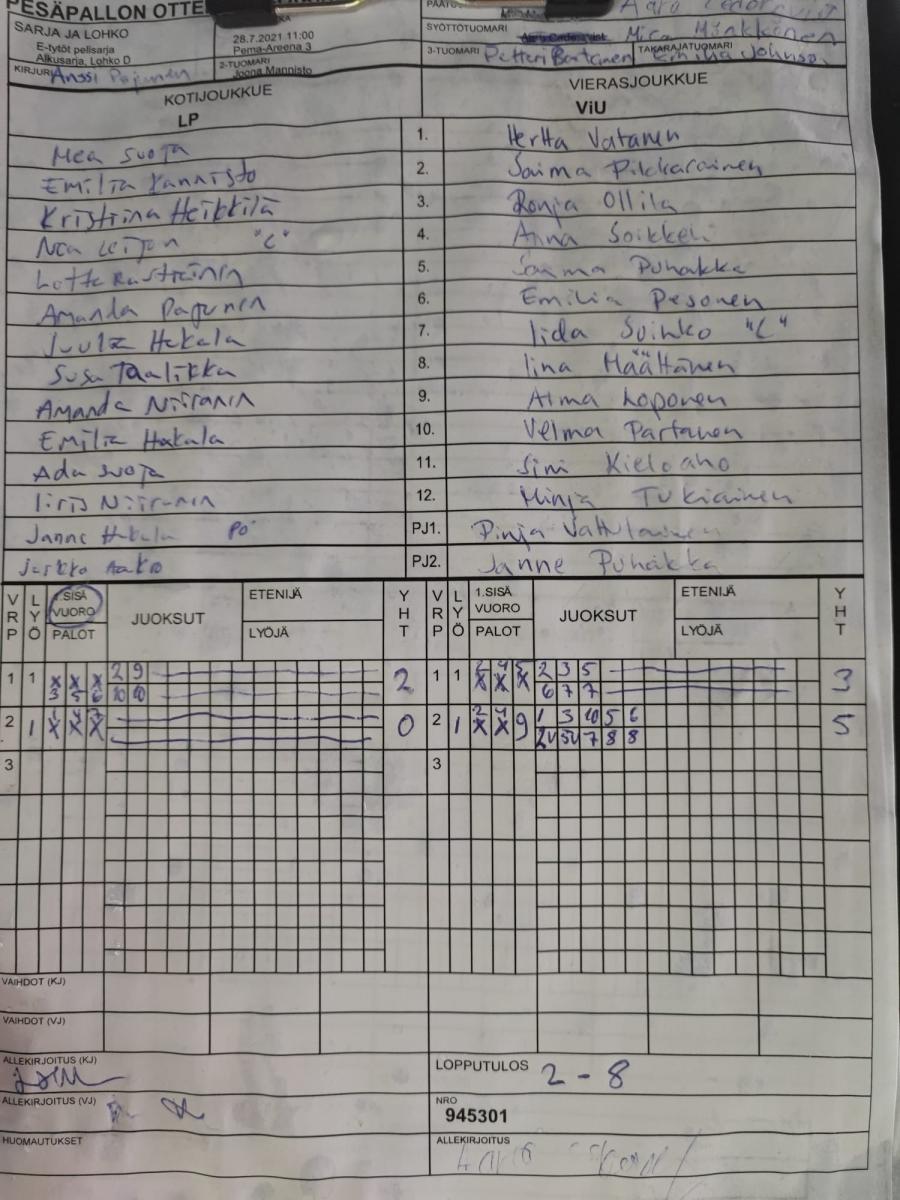 PESÄPALLON OTTE
SARJA JA LOHKO
E-tytöt pelisarja
Alkusarja, Lohko D
28.7.2021 11:00
Pema-Areena 3
SYÖTTÖTUOMARI Mira Mönkkönen
KIRJURI Anssi Pajunen
2-TUOMARI
Joona Mannisto
3-TUOMARI Petteri TAKARAJATUOMARI Emilia
KOTIJOUKKUE VIERASJOUKKUE
LP ViU
Nea Suoja 1. Hertta Vatanen
Emilia Kannisto 2. Saima Pikkarainen
Kristiina Heikkilä 3. Ronja Ollila
Nea "C" 4. Anna Soikkeli
Lotta 5. Saima Puhakka
Amanda Pajunen 6. Emilia Pesonen
Juulia Hakala 7. Iida Suihko "C"
Susa Taalikka 8. Iina Määttänen
Amanda Niiranen 9. Alma Loponen
Emilia Hakala 10. Velma Partanen
Ada Suoja 11. Sini Kieloaho
Iiris Niiranen 12. Minja Tukiainen
Janne Hakala PJ1. Pinja Vattulainen
Jarkko PJ2. Janne Puhakka
VRP LYÖ 1.SISÄ VUORO PALOT JUOKSUT ETENIJÄ LYÖJÄ YHT VRP LYÖ 1.SISÄ VUORO PALOT JUOKSUT ETENIJÄ LYÖJÄ YHT
1 1 X X X 2 9 2 1 1 2 4 5 2 3 5 3
3 5 6 10 10 X X X 6 7 7
2 1 X X X 0 2 1 X X 9 1 3 10 5 6 5
2V 5V 7 8 8
3 3
VAIHDOT (KJ)
VAIHDOT (VJ)
ALLEKIRJOITUS (KJ) LOPPUTULOS 2 - 8
ALLEKIRJOITUS (VJ) NRO
945301
HUOMAUTUKSET ALLEKIRJOITUS